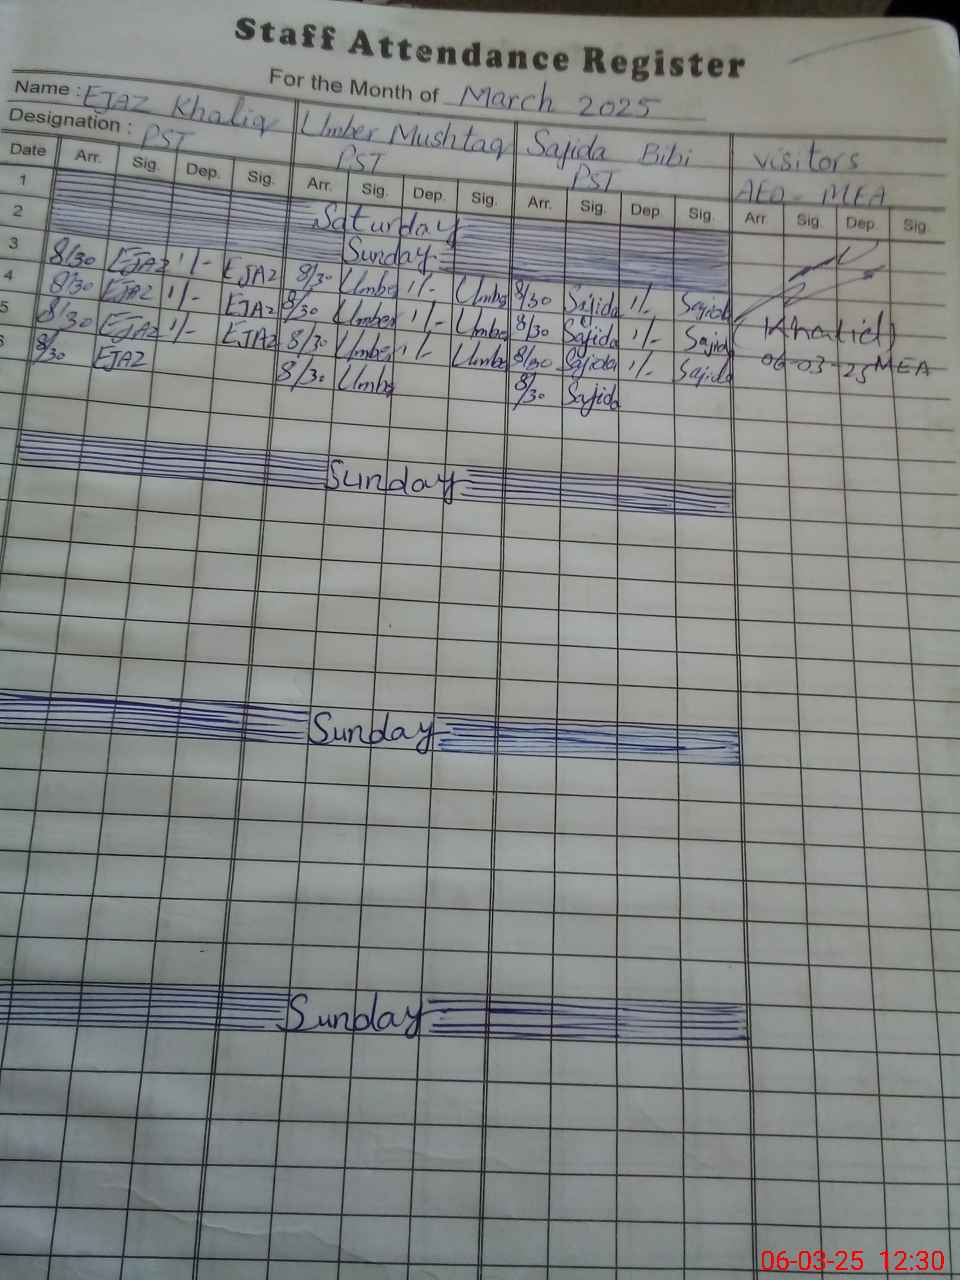 Staff Attendance Register
For the Month of March 2025
Name : EJAZ Khaliq Umber Mushtaq Sajida Bibi visitors
Designation : PST PST PST AEO - MEA
Date Arr. Sig. Dep. Sig. Arr. Sig. Dep. Sig. Arr. Sig. Dep Sig. Arr Sig. Dep. Sig.
1 Saturday
2 Sunday
3 8/30 EJAZ 1/- EJAZ 8/30 Umber 1/- Umber 8/30 Sajida 1/- Sajida
4 8/30 EJAZ 1/- EJAZ 8/30 Umber 1/- Umber 8/30 Sajida 1/- Sajida (Khalid)
5 8/30 EJAZ 1/- EJAZ 8/30 Umber 1/- Umber 8/30 Sajida 1/- Sajida 06-03-25 MEA
6 8/30 EJAZ 8/30 Umber 8/30 Sajida
Sunday
Sunday
Sunday
06-03-25 12:30